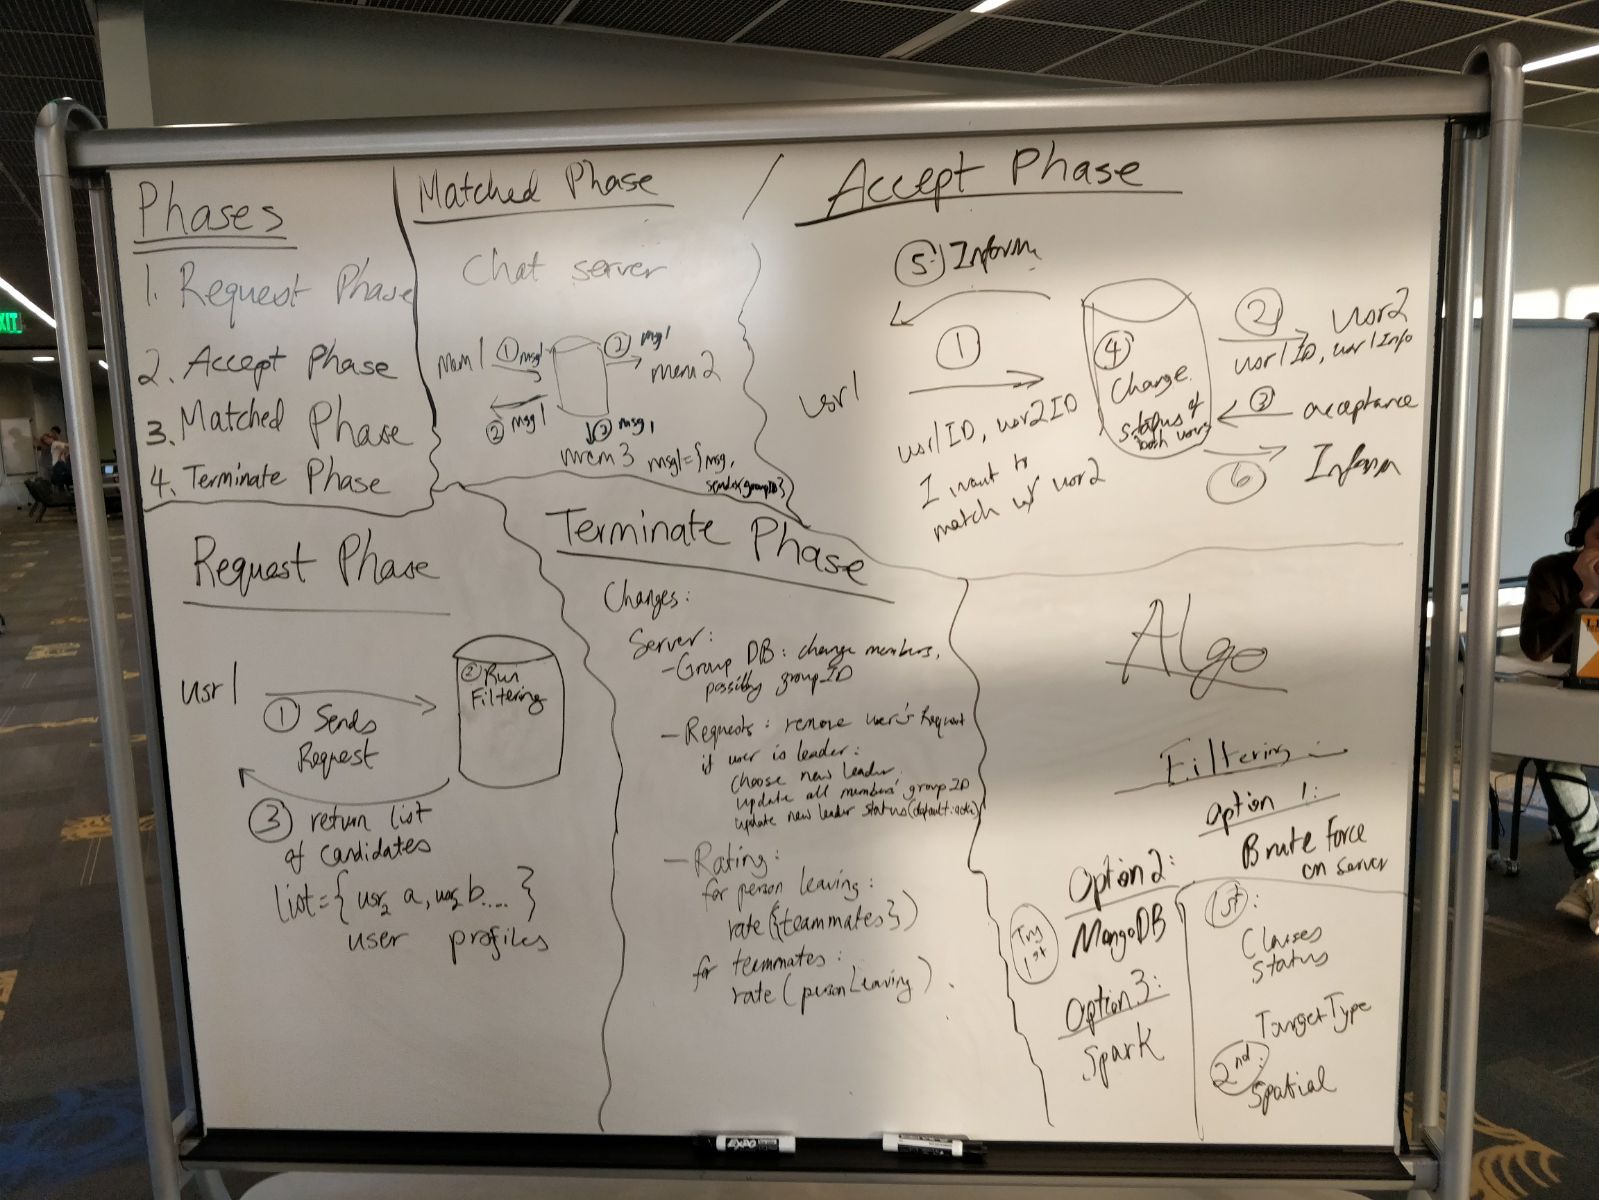 Phases
1. Request Phase
2. Accept Phase
3. Matched Phase
4. Terminate Phase
Matched Phase
Chat server
mem1
① msg1
② msg1
mem2
② msg1
② msg1
mem3
msg1={msg,
sender, groupID}
Accept Phase
⑤ Inform
①
usr1
usr1ID, usr2ID
I want to
match w/ usr2
④
Change
status of
both users
②
usr2
usr1ID, usr1Info
③ acceptance
⑥
Inform
Request Phase
usr1
① Sends
Request
② Run
Filtering
③ return list
of candidates
list={usr a, usr b....}
user profiles
Terminate Phase
Changes:
Server:
- Group DB: change members,
possibly groupID
- Requests: remove user's Request
if user is leader:
choose new leader,
update all members' groupID
update new leader status (default:
- Rating:
for person leaving:
rate({teammates})
for teammates:
rate(personLeaving).
Algo
Filtering:
Option 1:
Brute Force
on server
Option 2:
MongoDB
Try
1st
Option 3:
Spark
1st:
Classes
Status
TargetType
2nd:
Spatial
EXIT
EXPO